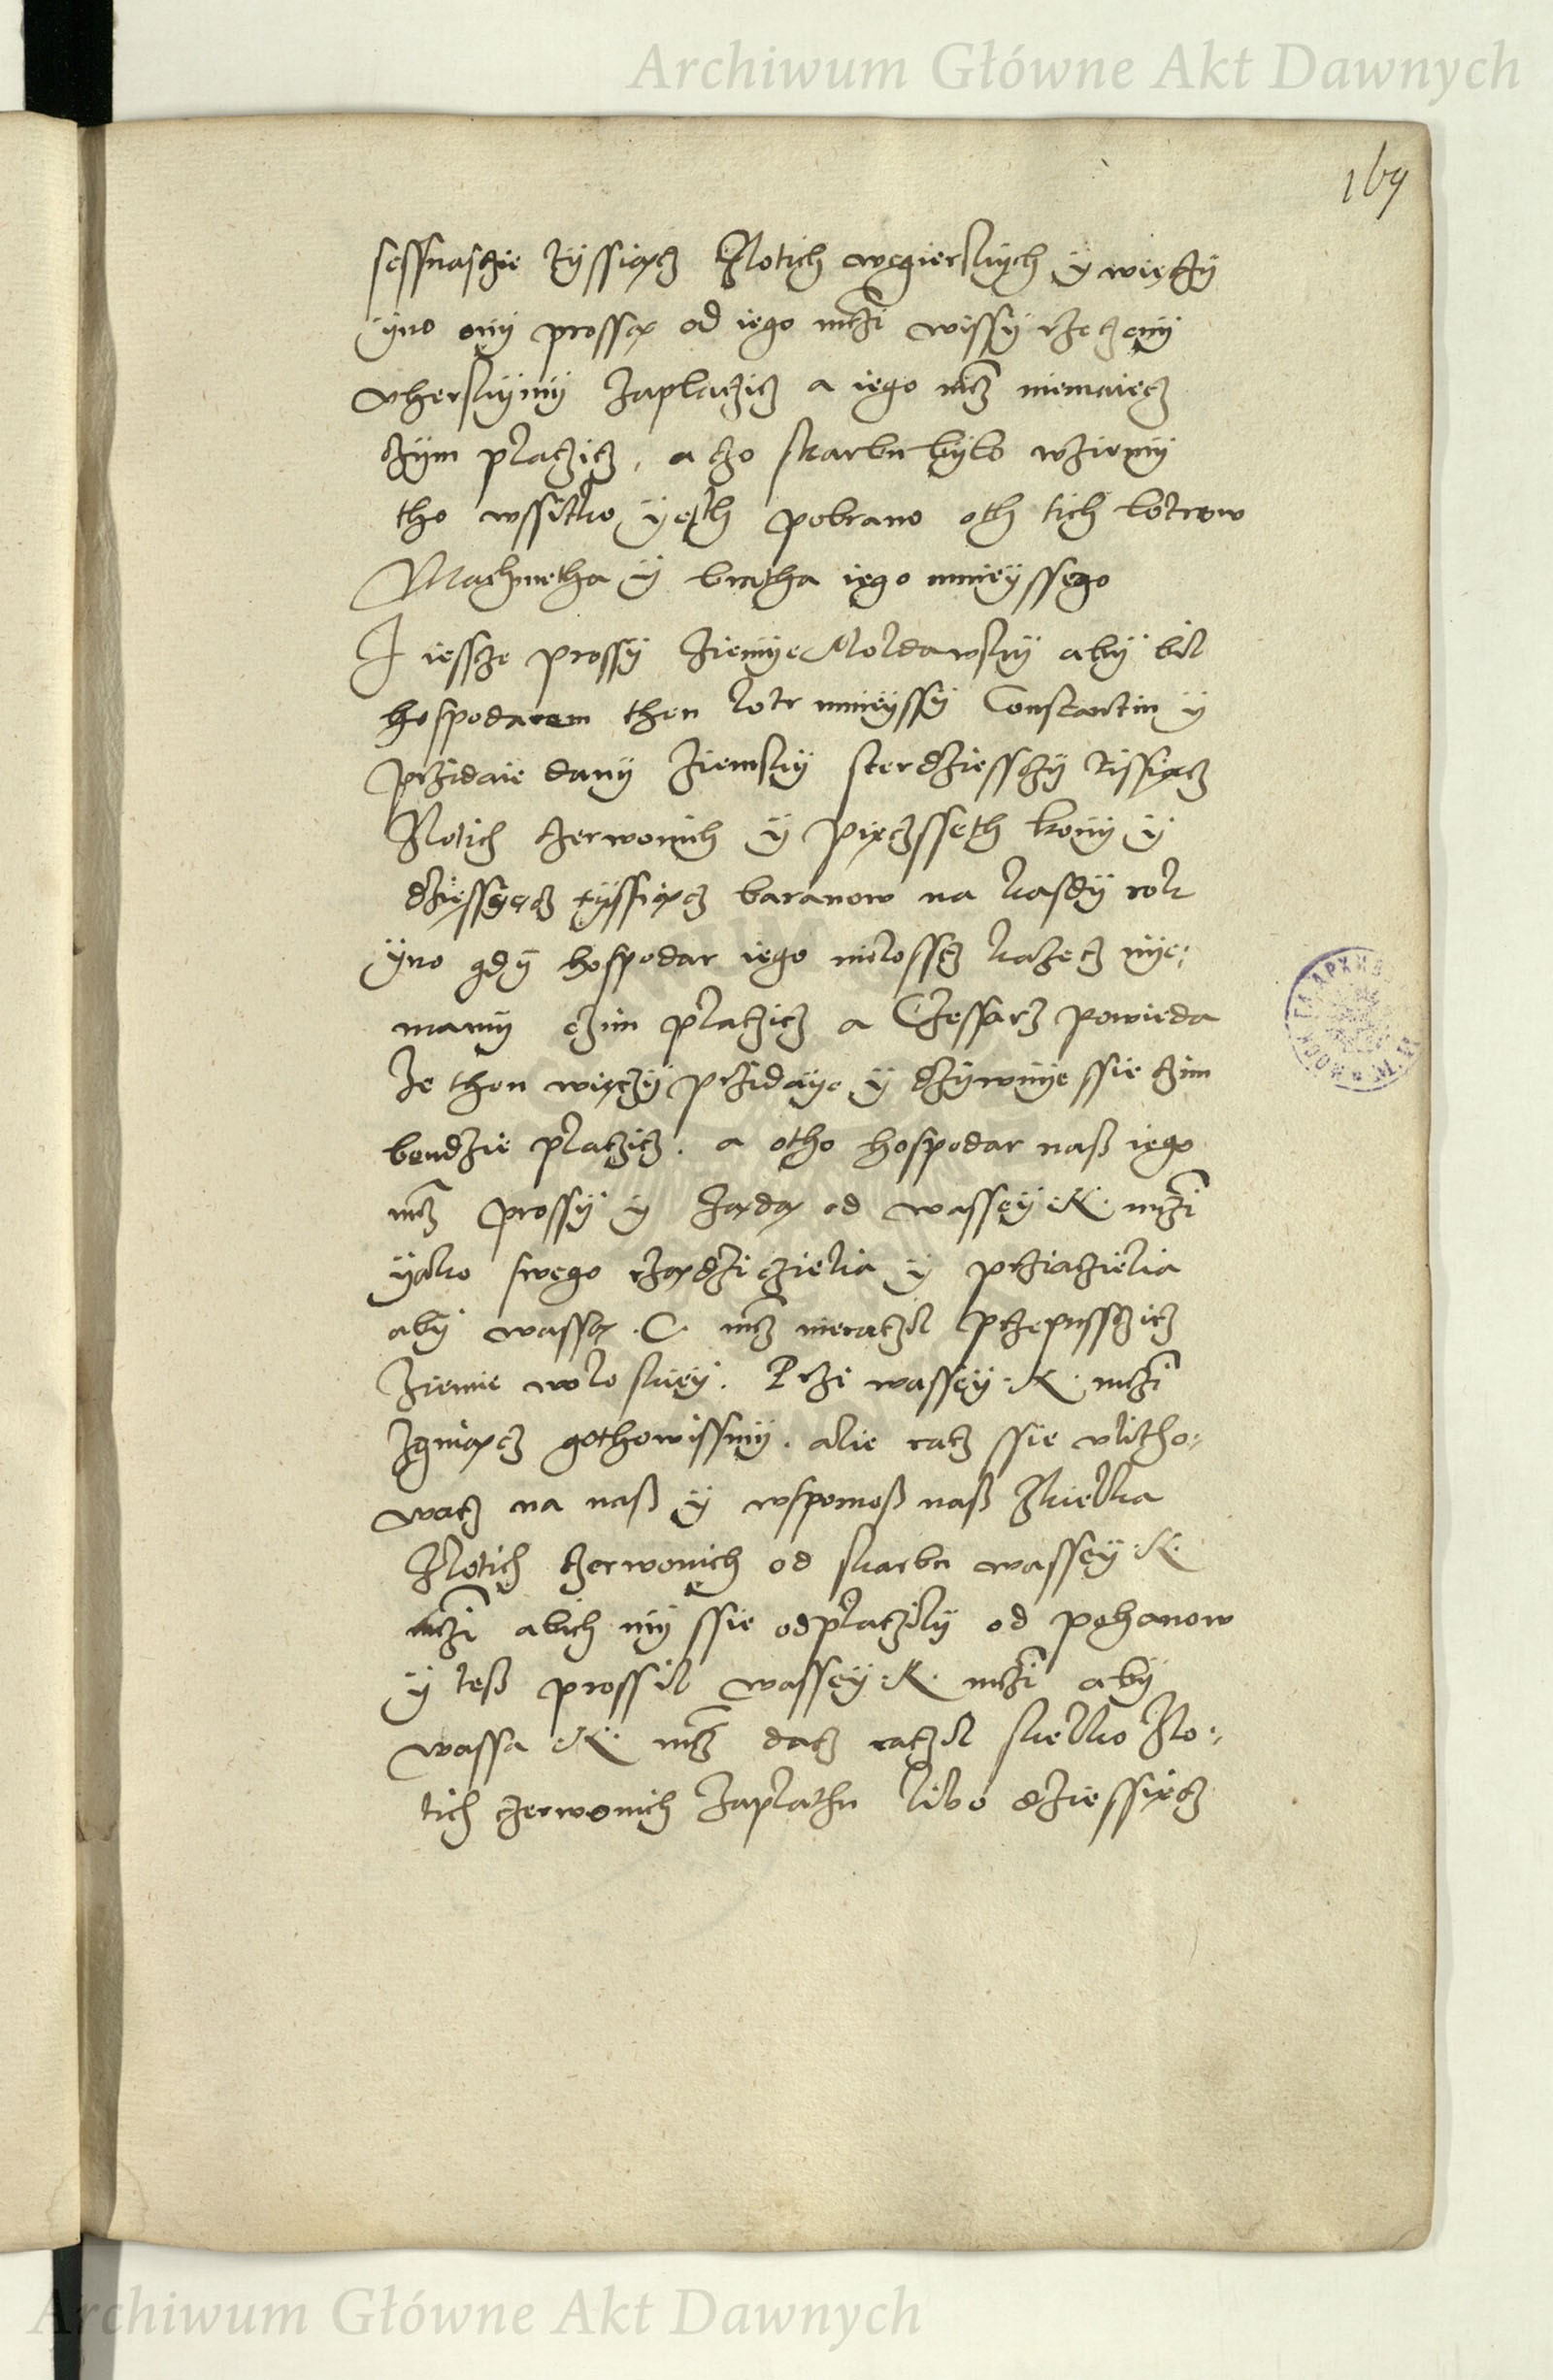 Archiwum Główne Akt Dawnych
169
sessnasczie tyssiącz zlotich węgierskych y więczy
yno ony prossą od iego mczi wissy rzeczony
vherskymy zaplaczicz a iego mcz niemaięcz
czym placzicz, a czo skarbu bylo wziemy
tho wssitko yesth pobrano oth tich lotrow
Machmetha y bratha iego mnieyssego
I iesscze prossy ziemye Moldawsky aby bil
hospodarem then lotr mnieyssy Constantin y
przidaie dany ziemsky sterdziessczy tissiącz
zlotich czerwonich y piączsseth kony y
dziessyęcz tyssiącz baranow na kasdy rok
yno gdy hospodar iego milosscz kazecz nye:
mamy czim placzicz a Czessarz powieda
ze then więczy przidaye y dzywuye ssie czim
bendzie placzicz. a otho hospodar naß iego
mcz prossy y ząda od wassey .K. mczi
yako swego rządzicziela y prziacziela
aby wassa .C. mcz nieraczil przepussczicz
ziemie woloskiey. Przi wassey .K. mczi
zginącz gothowissmy. alie racz ssie vlitho:
wacz na naß y wspomoß naß zkielka
zlotich czerwonich od skarbu wassey .K.
mczi abich my ssie odplaczily od pohanow
y teß prossil wassey .K. mczi aby
wassa .K. mcz dacz raczil skielko zlo:
tich czerwonich zaplathu libo dziessięcz
Archiwum Główne Akt Dawnych